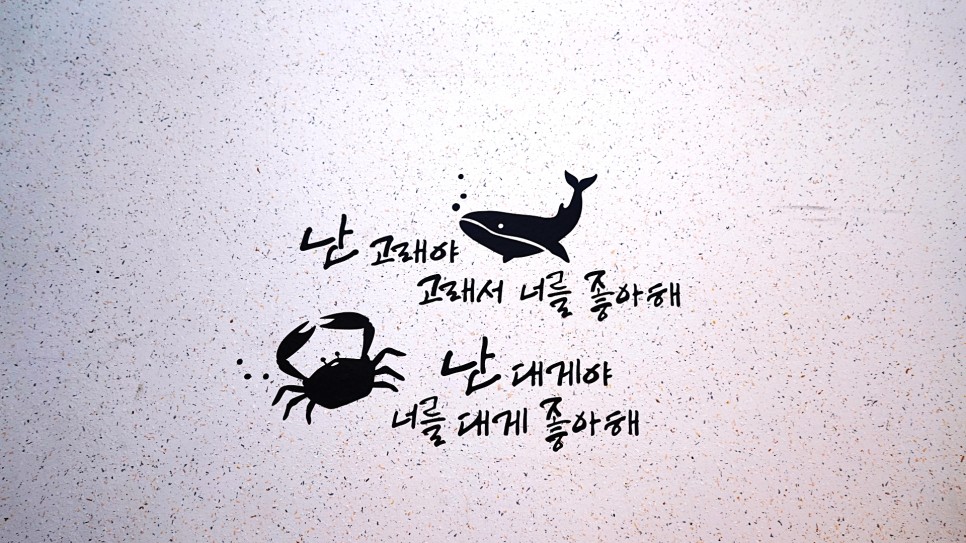 난 고래야
고래서 너를 좋아해
난 대게야
너를 대게 좋아해